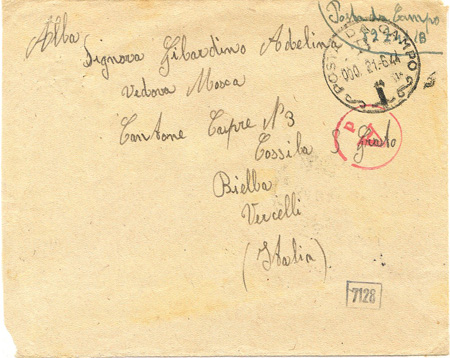 Posta da Campo
POSTA DA CAMPO
000. 21.6.44
Alla
Signora Gibardino Adelina
Vedova Mosca
Cantone Capre N 3
Cossila S Grato
Biella
Vercelli
(Italia)
7128